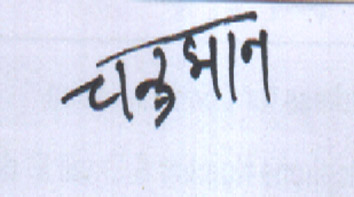 चन्द्रभान